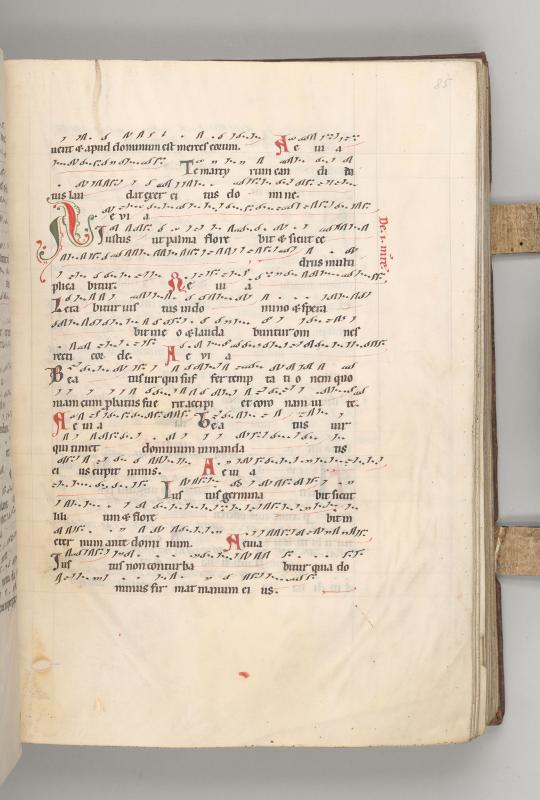 85
uent & apud dominum est merces eorum. Ae uia
Te marty rum can di da
tus lau dat exer ci tus do mi ne.
Ae v i a
De .i. mr̄e
Iustus ut palma flore bit & sicut ce
drus multi
plica bitur. Ae ui a
Leta bitur ius tus in do mino & spera
bit in e o & lauda buntur om nes
recti cor de. Ae v i a
Bea tus uir qui suf fer temp ta ti o nem quo
niam cum pbatus fue rit accipi et coro nam ui te.
Ae ui a Bea tus uir
qui timet dominum in manda tis
ei us cupit nimis. Ae ui a
Ius tus germina bit sicut
lili um & flore bit in
eter num ante domi num. Ae uia
Ius tus non conturba bitur quia do
minus fir mat manum ei us.